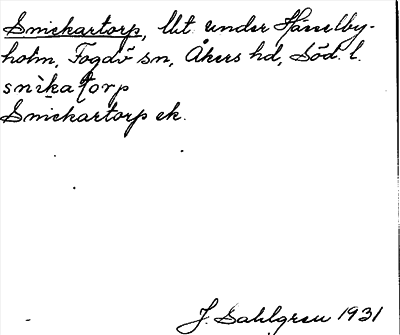 Snickartorp, lht. under Hässelby-
holm, Fogdö sn, Åkers hd, Söd. l.
snìkatorp
Snickartorp ek.
J. Sahlgren 1931